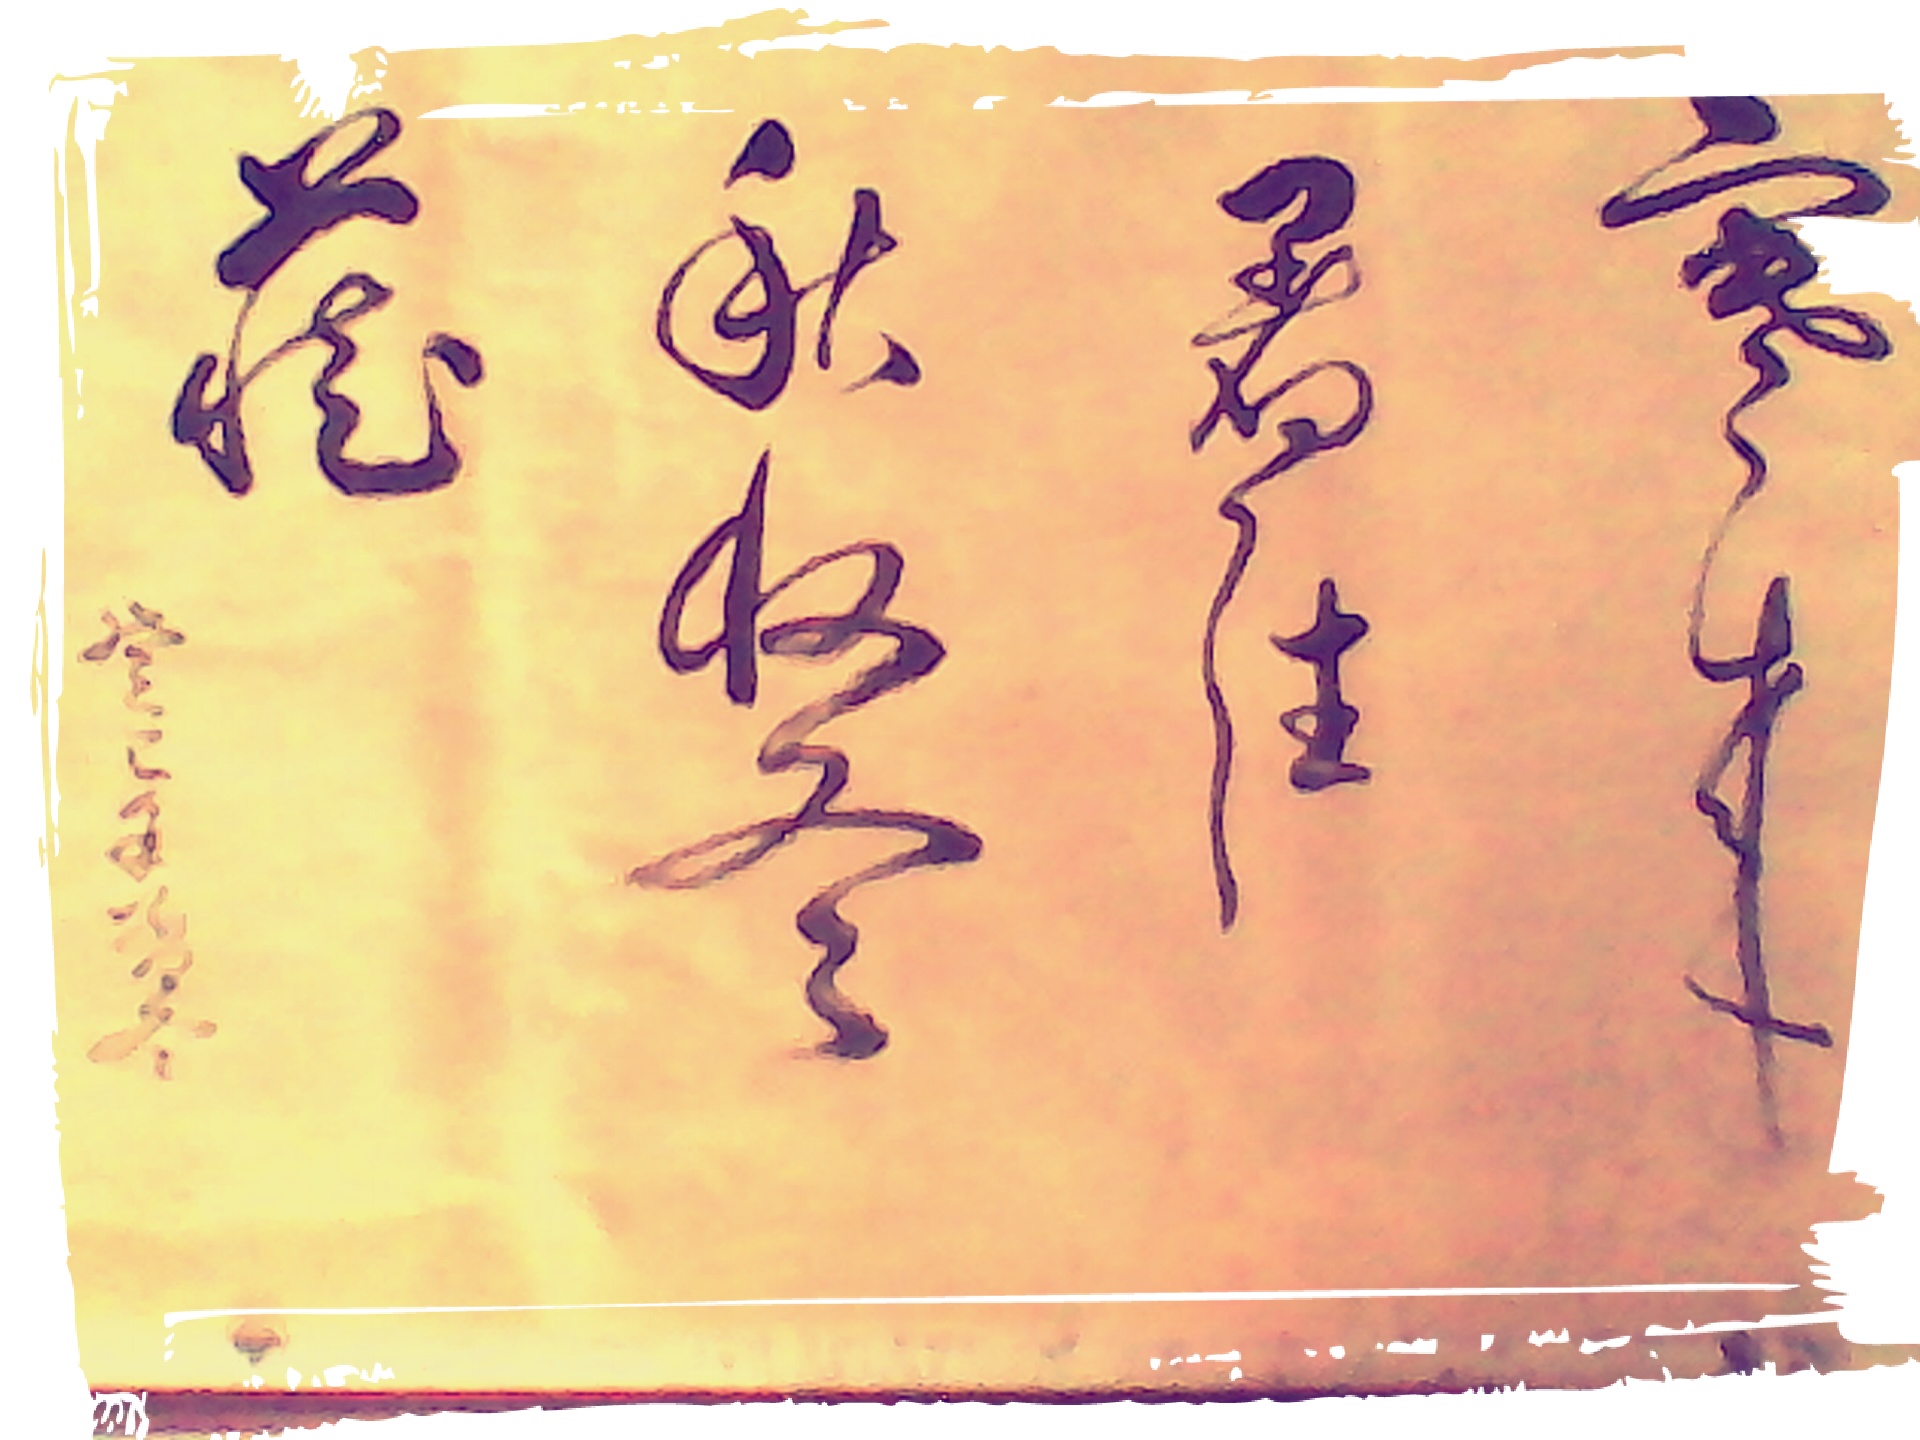 寒来
暑往
秋收冬
藏